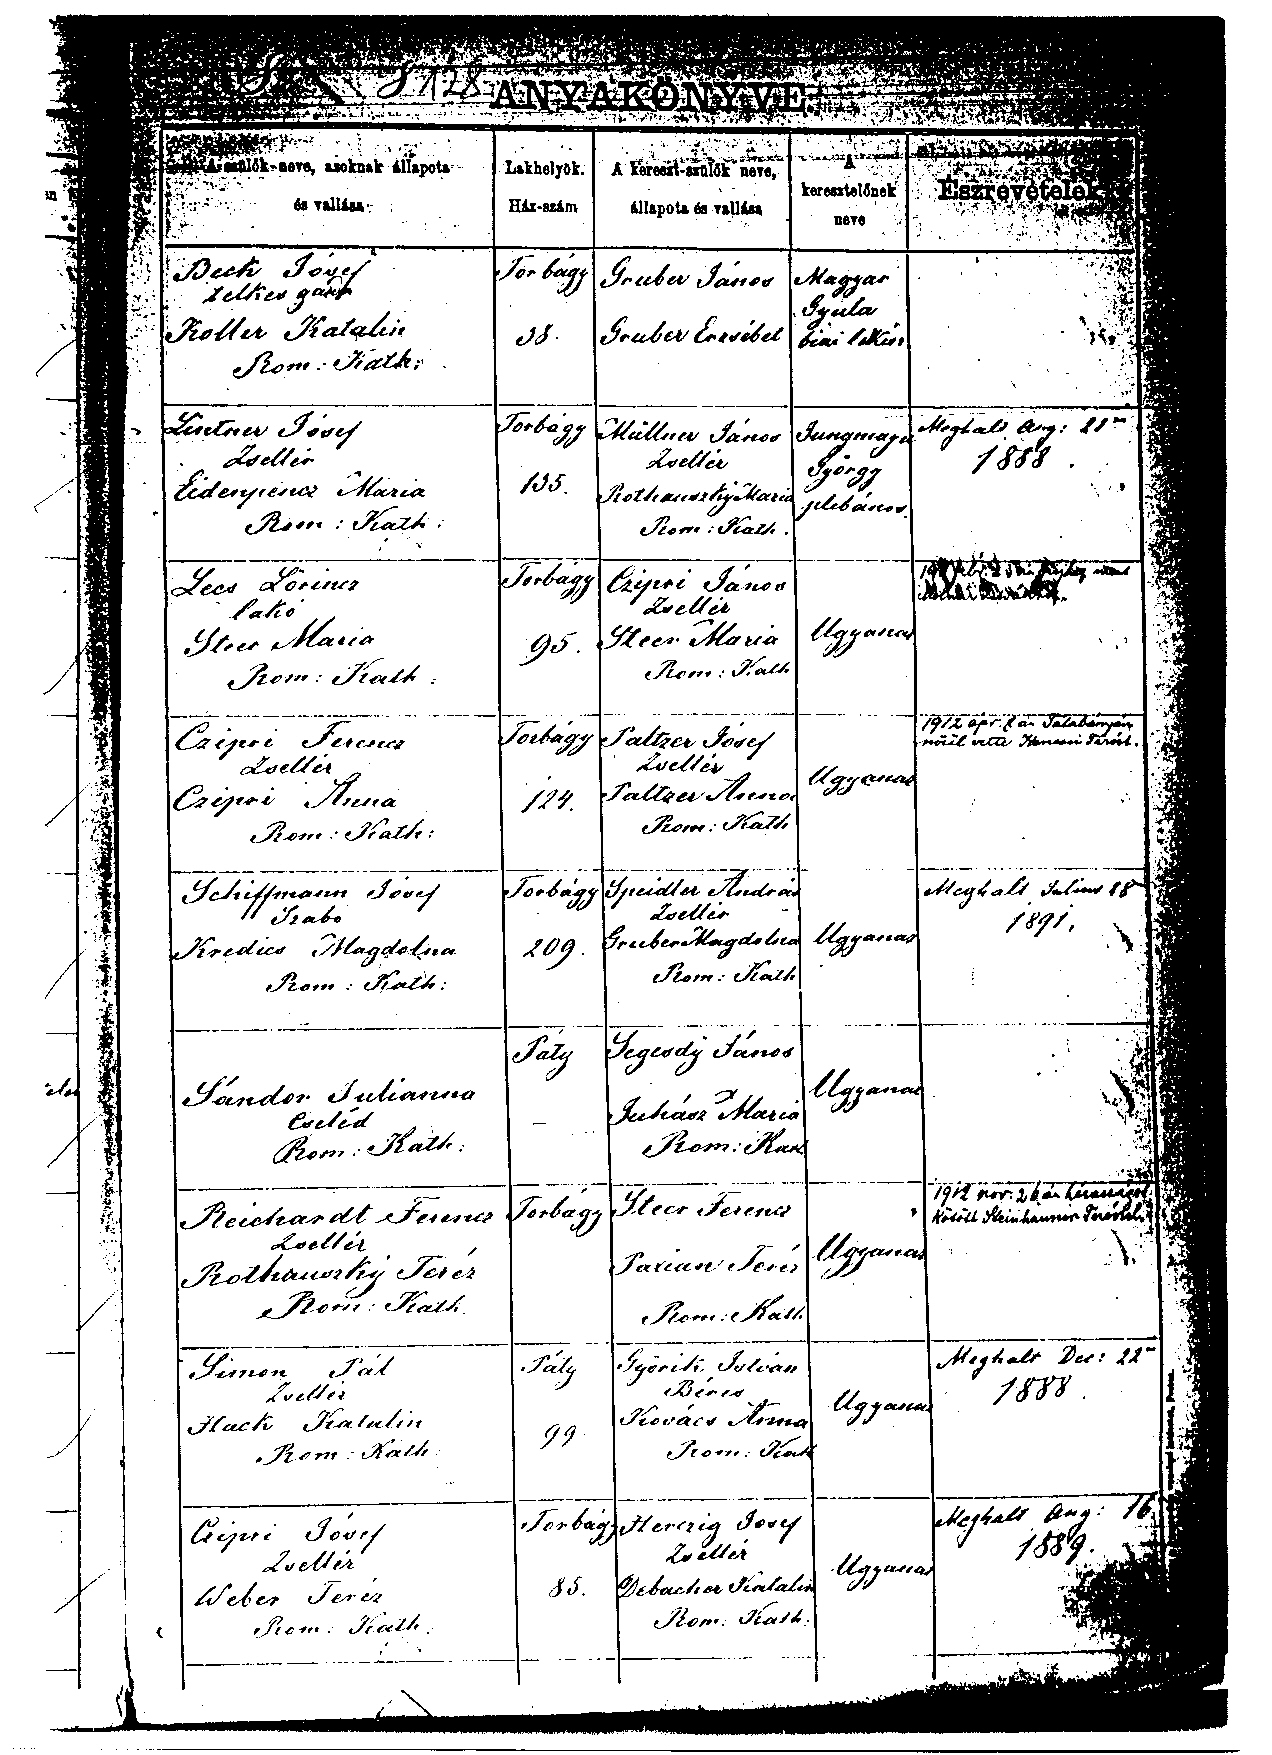 128
ANYAKÖNYVE.
A szülők neve, azoknak állapota
és vallása
Lakhelyök.
Ház-szám
A kereszt-szülők neve,
állapota és vallása
A
keresztelőnek
neve
Észrevételek
Beck József
Koller Katalin
Rom: Kath:
Torbágy
38.
Gruber János
Gruber Erzsébet
Magyar
Gyula
biai
Lintner József
Zsellér
Maria
Rom: Kath:
Torbágy
135.
Müllner János
Zsellér
Rothauszky Maria
Rom: Kath.
György
plebános.
Meghalt Aug: 21
1888.
Lecs Lőrincz
lakó
Steer Maria
Rom: Kath:
Torbágy
95.
Czipri János
Zsellér
Steer Maria
Rom: Kath
Ugyanaz
Czipri Ferencz
Zsellér
Czipri Anna
Rom: Kath:
Torbágy
124.
Paltzer József
Zsellér
Paltzer Anna
Rom: Kath
Ugyanaz
1912 ápr. án Tatabányán
nőül vette Terézt.
Schiffmann József
Szabo
Kredics Magdolna
Rom: Kath:
Torbágy
209.
Speidler András
Zsellér
Gruber Magdolna
Rom: Kath
Ugyanaz
Meghalt Julius 18
1891.
Sándor Julianna
Cseléd
Rom: Kath:
Páty
–
Segesdy János
Juhász Maria
Rom: Kath
Ugyanaz
Reichardt Ferencz
Zsellér
Rothauszky Teréz
Rom: Kath.
Torbágy
Steer Ferencz
Parian Teréz
Rom: Kath
Ugyanaz
1912 nov: 26 án házasságot
kötött Steinhauser Terézzel
Simon Pál
Zsellér
Hack Katalin
Rom: Kath
Páty
99
Györik István
Béres
Kovács Anna
Rom: Kath
Ugyanaz
Meghalt Dec: 22
1888.
Czipri József
Zsellér
Weber Teréz
Rom: Kath:
Torbágy
85.
Herczig József
Zsellér
Debacher Katalin
Rom: Kath:
Ugyanaz
Meghalt Aug: 16.
1889.